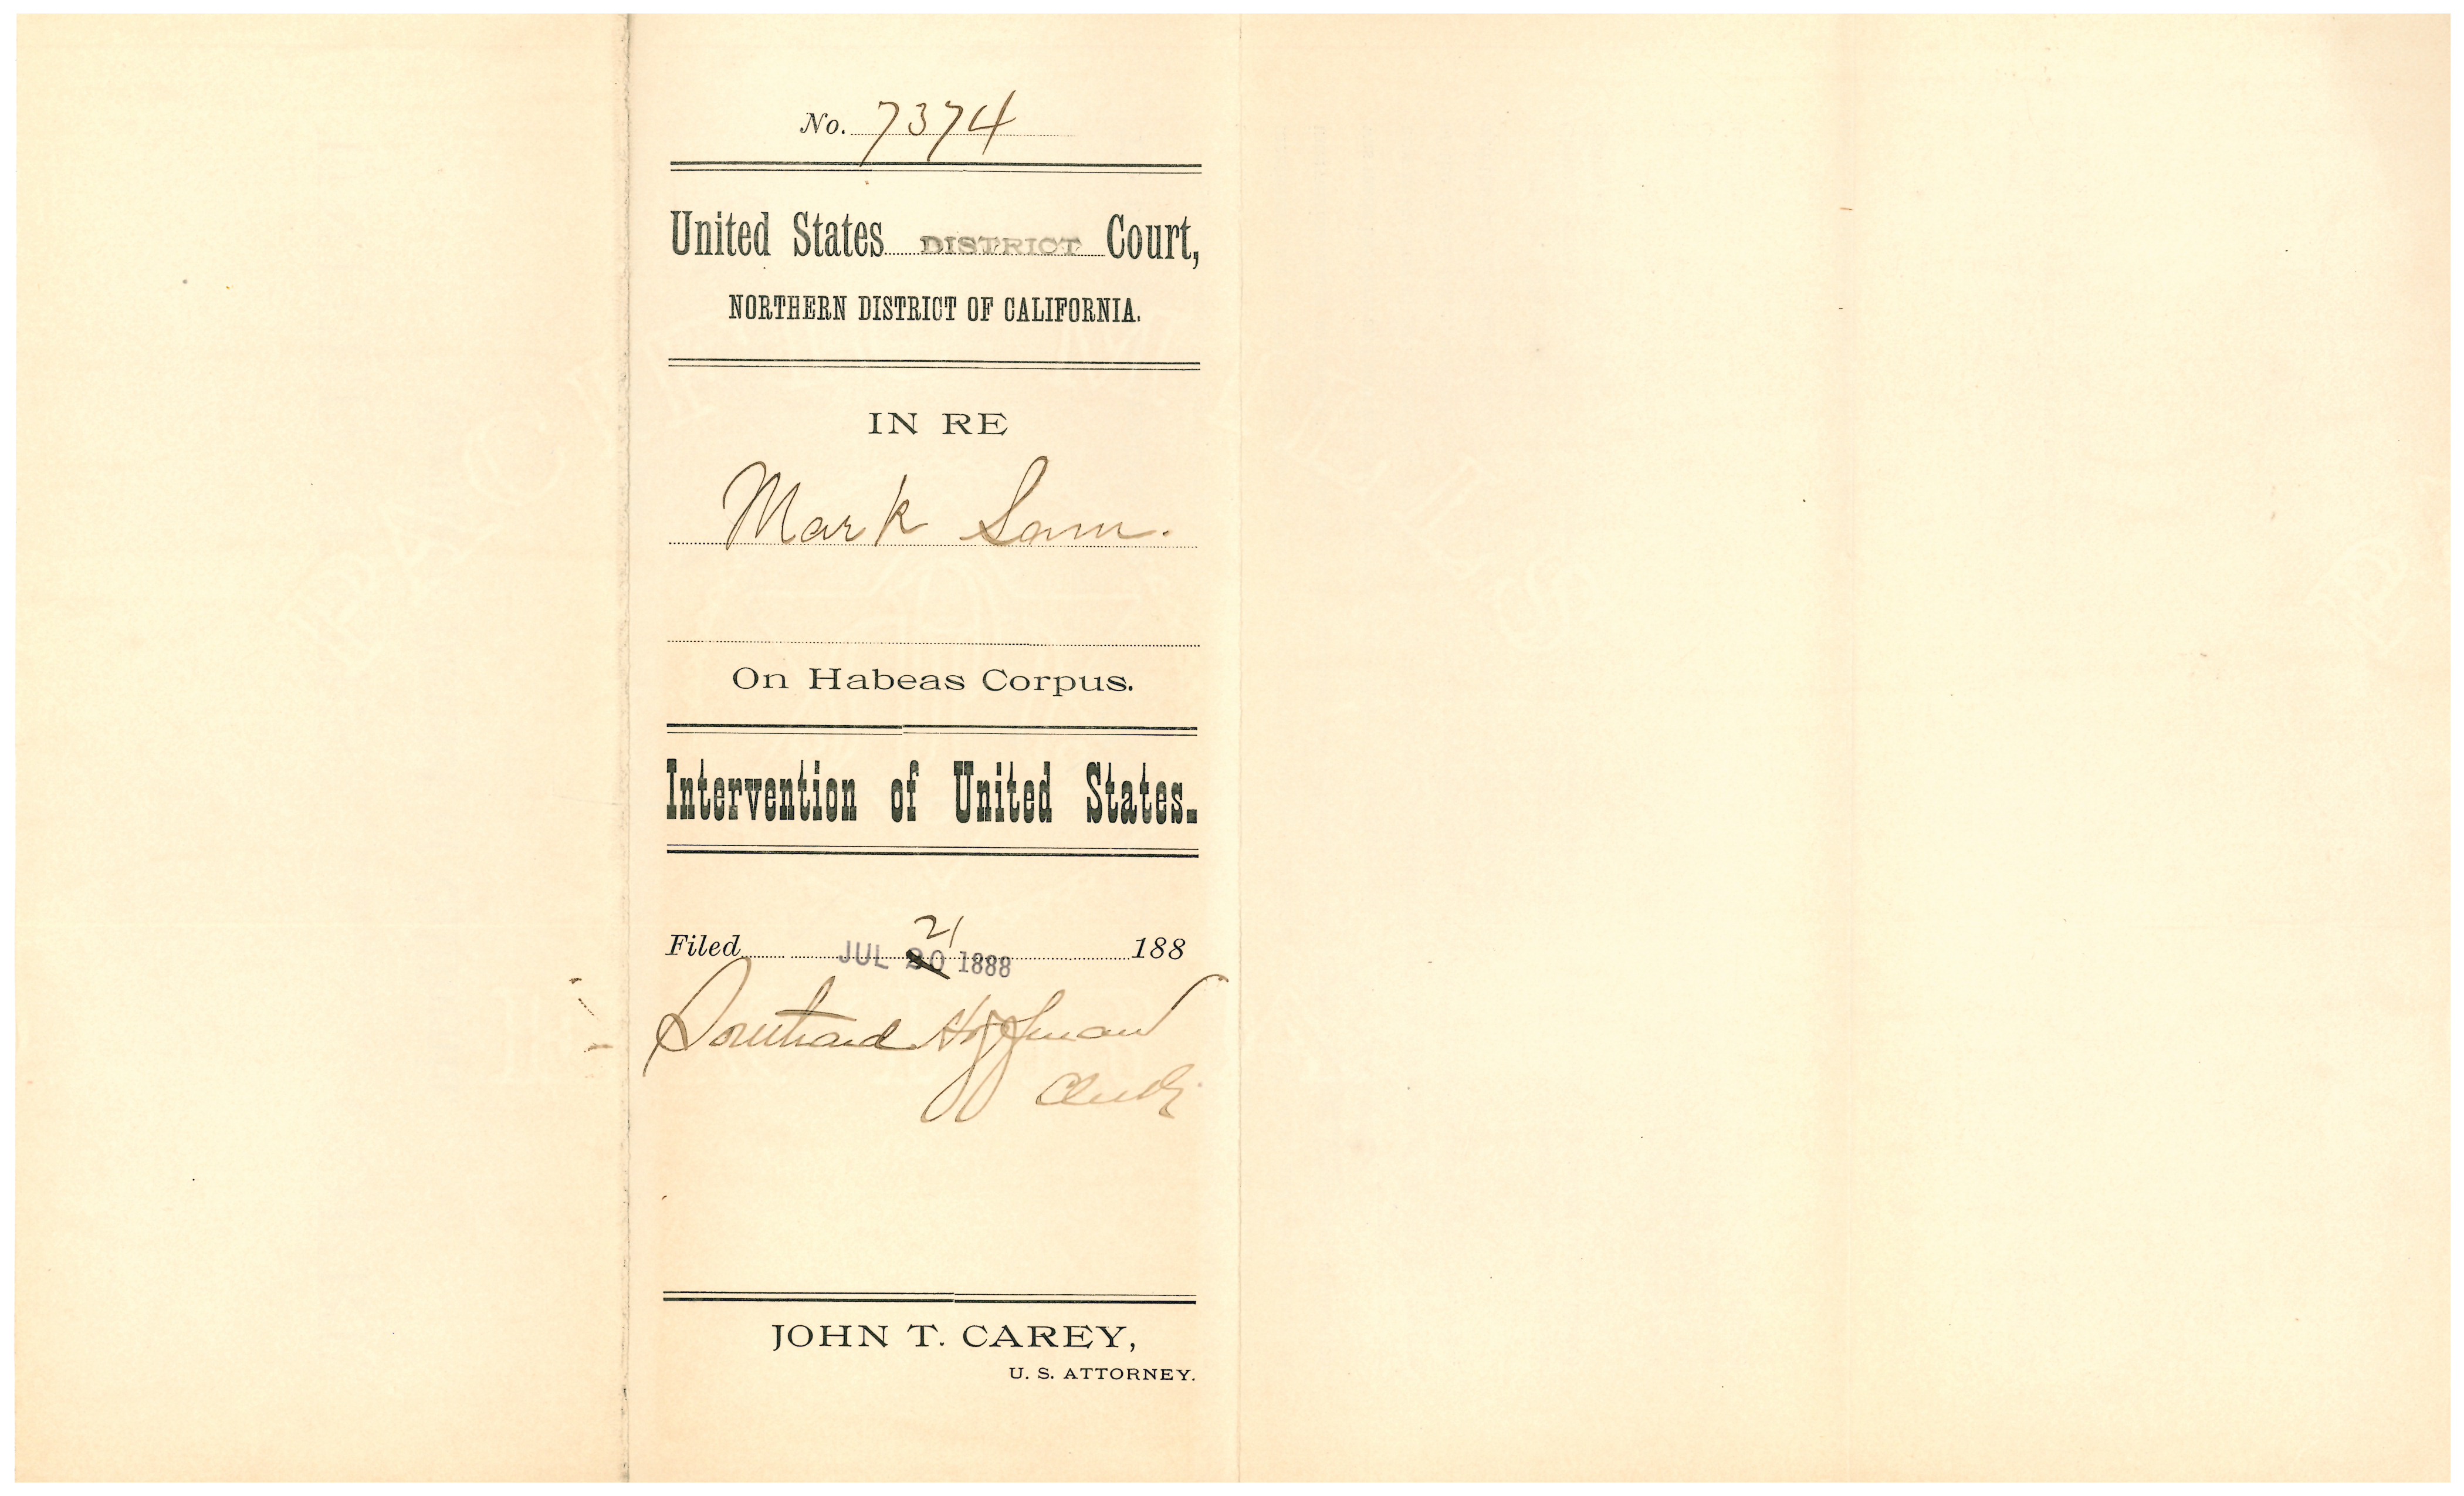 No. 7374
United States DISTRICT Court,
NORTHERN DISTRICT OF CALIFORNIA.
IN RE
Mark Sam.
On Habeas Corpus.
Intervention of United States.
21
Filed JUL 20 1888 188
Southard Hoffman
Clerk
JOHN T. CAREY,
U. S. ATTORNEY.